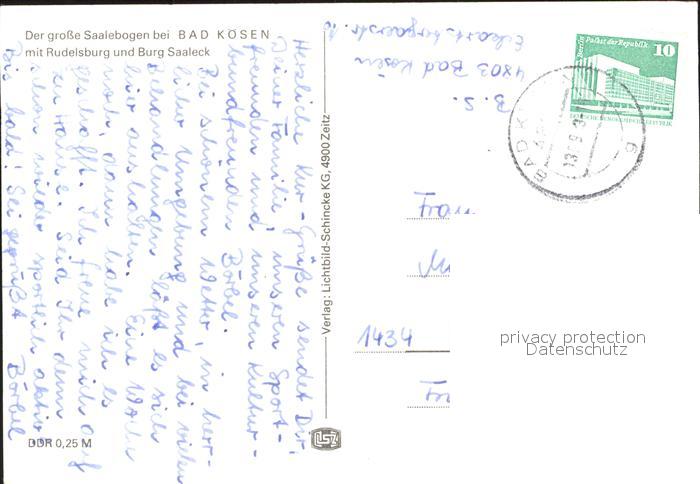 Der große Saalebogen bei BAD KÖSEN
mit Rudelsburg und Burg Saaleck
Herzliche Kur-Grüße sendet Dir,
Deiner Familie, unseren Sport-
freunden und unseren Kultur-
bundfreunden Bärbel.
Bei schönem Wetter, in herr-
licher Umgebung und bei vielen
Behandlungen läßt es sich
hier aushalten. Eine Woche
noch, dann habe ich es
geschafft. Ich freue mich auf
zu Hause. Seid Ihr denn
schon wieder sportlich aktiv?
Bis bald! Sei gegrüßt Bärbel
DDR 0,25 M
Verlag: Lichtbild-Schincke KG, 4900 Zeitz
LSZ
B. S.
4803 Bad Kösen
Berlin Palast der Republik
10
DEUTSCHE DEMOKRATISCHE REPUBLIK
BAD K
Frau
1434
privacy protection
Datenschutz